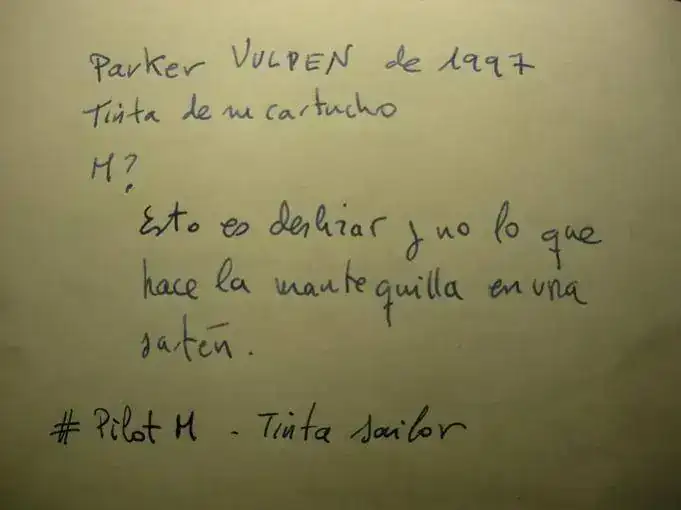 Parker VULPEN de 1997
Tinta de un cartucho
M?
Esto es deslizar y no lo que
hace la mantequilla en una
sartén.
# Pilot M - Tinta sailor